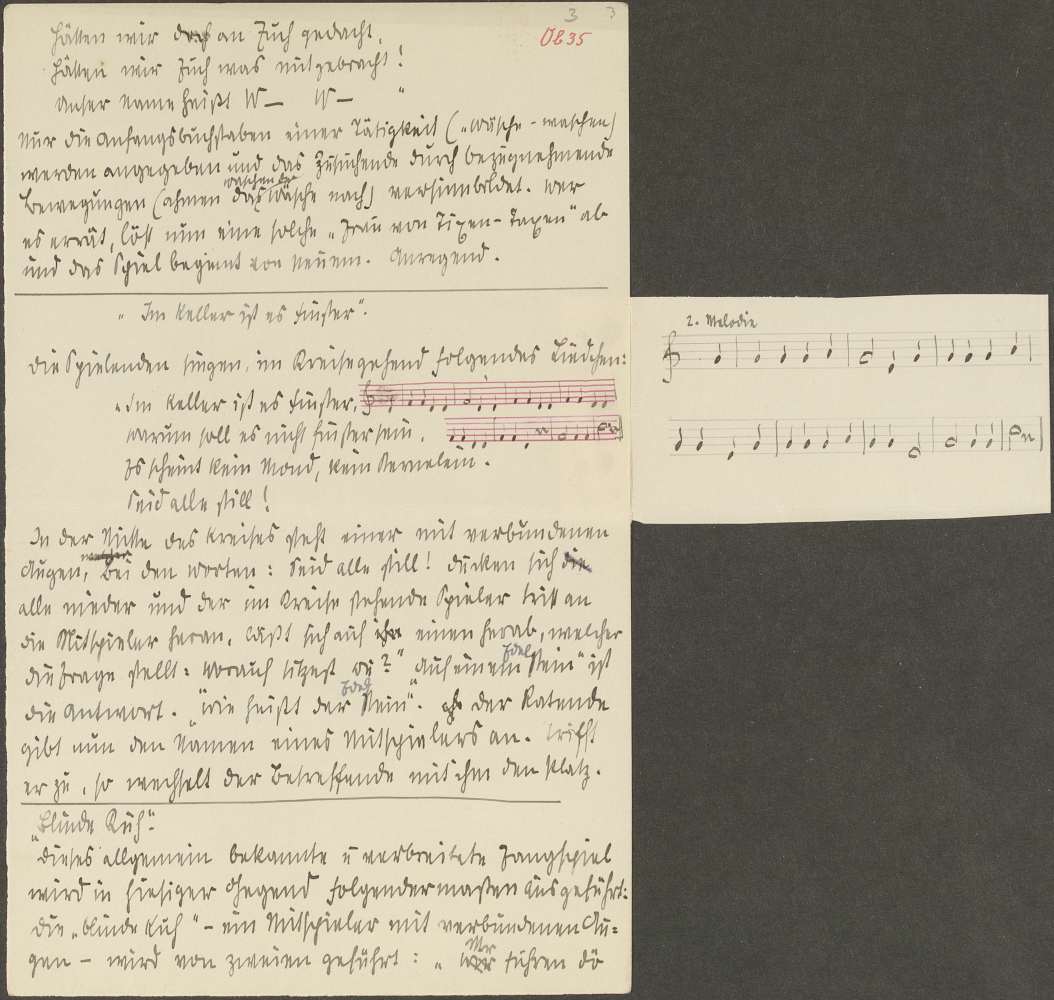 3 3
Ob 35
Hätten wir doch an Euch gedacht,
Hätten wir Euch was mitgebracht!
Unser Name heißt W— W— "
Nur die Anfangsbuchstaben einer Tätigkeit („Wäsche-waschen)
werden angegeben und das Zusuchende durch bezugnehmende
Bewegungen (ahmen das Wäsche nach) versinnbildet. Wer
es errät, löst nun eine solche „Frau von Tixen-Taxen" ab
und das Spiel beginnt von Neuem. Anregend.
„Im Keller ist es finster".
Die Spielenden singen, im Kreise gehend folgendes Liedchen:
„Im Keller ist es finster,
warum soll es nicht finster sein.
Es scheint kein Mond, kein Sternelein.
Seid alle still!
2. Melodie
In der Mitte des Kreises steht einer mit verbundenen
Augen, Bei den Worten: Seid alle still! ducken sich die
alle nieder und der im Kreise stehende Spieler tritt an
die Mitspieler heran, läßt sich auf ihn einen herab, welcher
die Frage stellt: Worauf sitzest du?" „Auf einem Edelstein" ist
die Antwort. „Wie heißt der Edelstein". Der Ratende
gibt nun den Namen eines Mitspielers an. Trifft
er zu, so wechselt der Betreffende mit ihm den Platz.
„Blinde Kuh".
Dieses allgemein bekannte u verbreitete Fangspiel
wird in hiesiger Gegend folgendermaßen ausgeführt:
Die „blinde Kuh" – ein Mitspieler mit verbundenen Au=
gen – wird von zweien geführt: „Mr führen dö